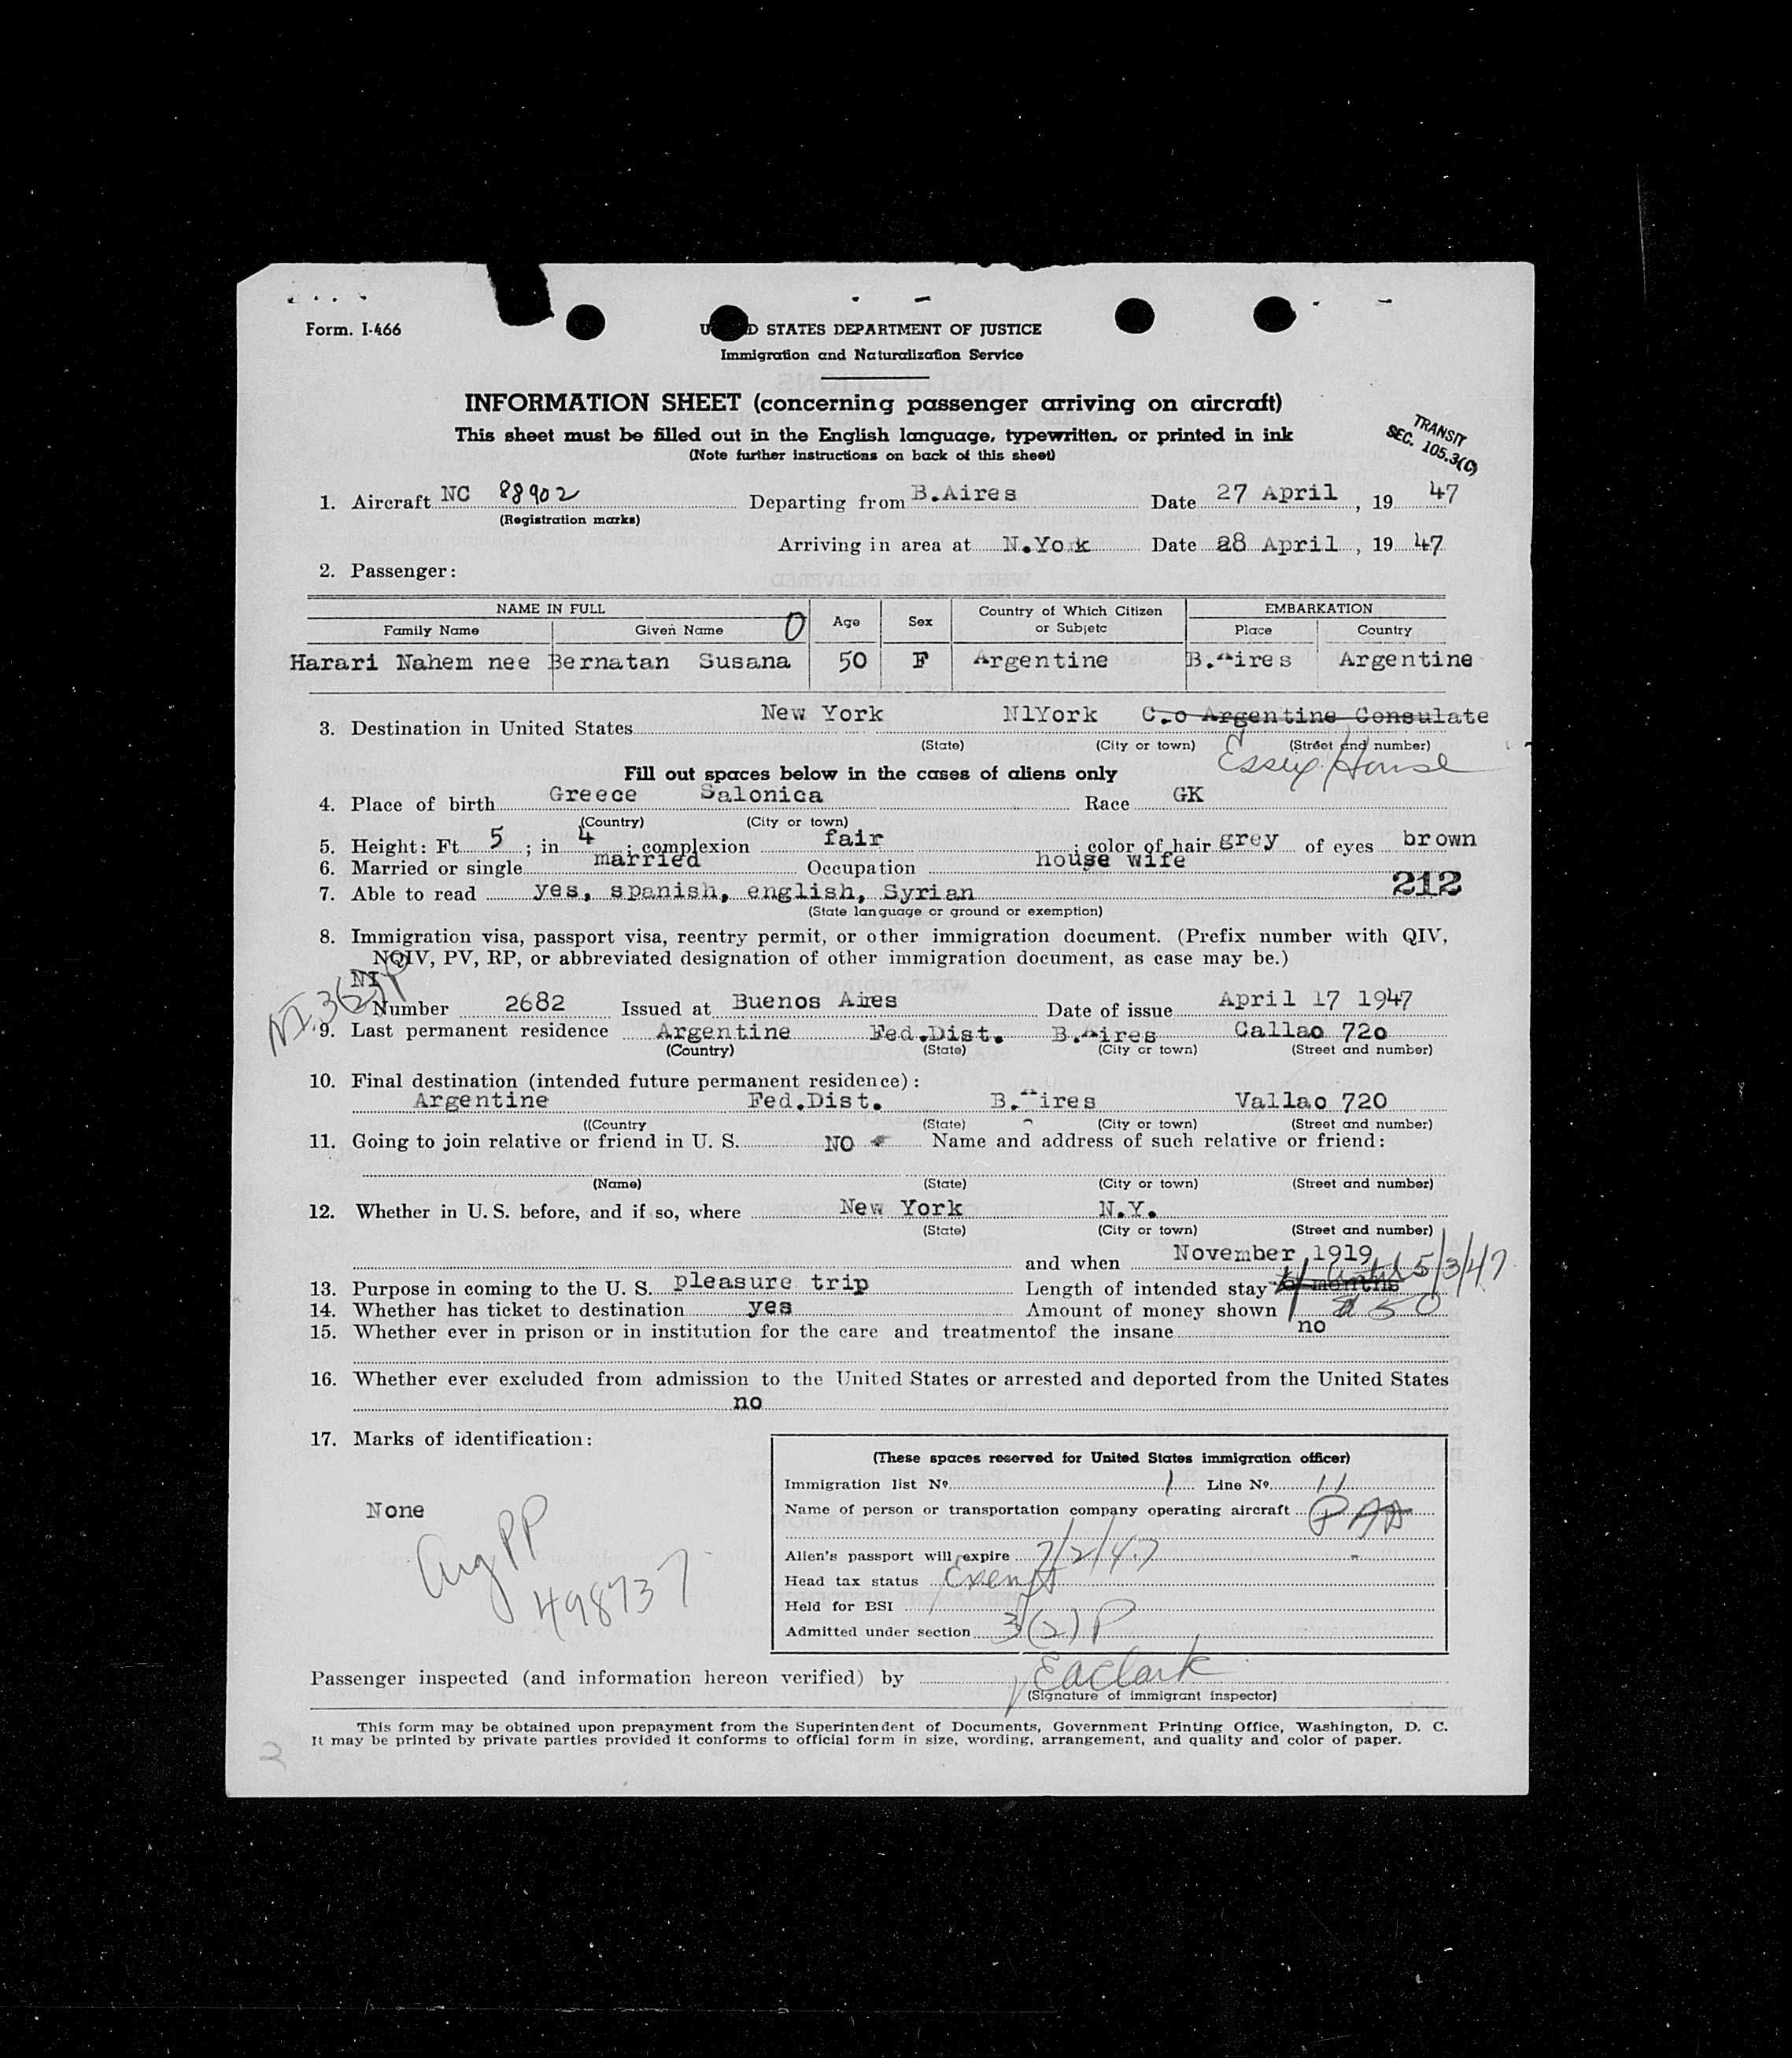 Form. I-466
D STATES DEPARTMENT OF JUSTICE
Immigration and Naturalization Service
INFORMATION SHEET (concerning passenger arriving on aircraft)
This sheet must be filled out in the English language, typewritten, or printed in ink
(Note further instructions on back of this sheet)
TRANSIT
SEC. 105.3(C)
1. Aircraft NC 88902 Departing from B.Aires Date 27 April, 19 47
(Registration marks)
Arriving in area at N.York Date 28 April, 19 47
2. Passenger:
NAME IN FULL Age Sex Country of Which Citizen or Subjetc EMBARKATION
Family Name Given Name 0 Place Country
Harari Nahem nee Bernatan Susana 50 F Argentine B.Aires Argentine
3. Destination in United States New York NlYork C.o Argentine Consulate
(State) (City or town) (Street and number)
Essex House
Fill out spaces below in the cases of aliens only
4. Place of birth Greece Salonica Race GK
(Country) (City or town)
5. Height: Ft 5 ; in 4 ; complexion fair ; color of hair grey of eyes brown
6. Married or single married Occupation house wife
7. Able to read yes, spanish, english, Syrian 212
(State language or ground or exemption)
8. Immigration visa, passport visa, reentry permit, or other immigration document. (Prefix number with QIV,
NQIV, PV, RP, or abbreviated designation of other immigration document, as case may be.)
NI
NI 3(2)P
Number 2682 Issued at Buenos Aires Date of issue April 17 1947
9. Last permanent residence Argentine Fed.Dist. B.Aires Callao 72o
(Country) (State) (City or town) (Street and number)
10. Final destination (intended future permanent residence):
Argentine Fed.Dist. B.Aires Vallao 720
((Country (State) (City or town) (Street and number)
11. Going to join relative or friend in U. S. NO Name and address of such relative or friend:
(Name) (State) (City or town) (Street and number)
12. Whether in U. S. before, and if so, where New York N.Y.
(State) (City or town) (Street and number)
and when November 1919
13. Purpose in coming to the U. S. pleasure trip Length of intended stay months until 5/3/47
14. Whether has ticket to destination yes Amount of money shown $ 50
15. Whether ever in prison or in institution for the care and treatmentof the insane no
16. Whether ever excluded from admission to the United States or arrested and deported from the United States
no
17. Marks of identification:
None
Arg PP
498737
(These spaces reserved for United States immigration officer)
Immigration list Nº 1 Line Nº 11
Name of person or transportation company operating aircraft PAA
Alien's passport will expire 7/2/47
Head tax status Exempt
Held for BSI
Admitted under section 3(2)P
Passenger inspected (and information hereon verified) by EAClark
(Signature of immigrant inspector)
This form may be obtained upon prepayment from the Superintendent of Documents, Government Printing Office, Washington, D. C.
It may be printed by private parties provided it conforms to official form in size, wording, arrangement, and quality and color of paper.
2